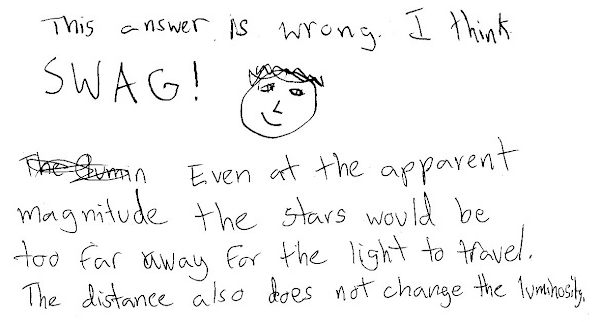 This answer is wrong. I think
SWAG!
Even at the apparent
magnitude the stars would be
too far away for the light to travel.
The distance also does not change the luminosity.